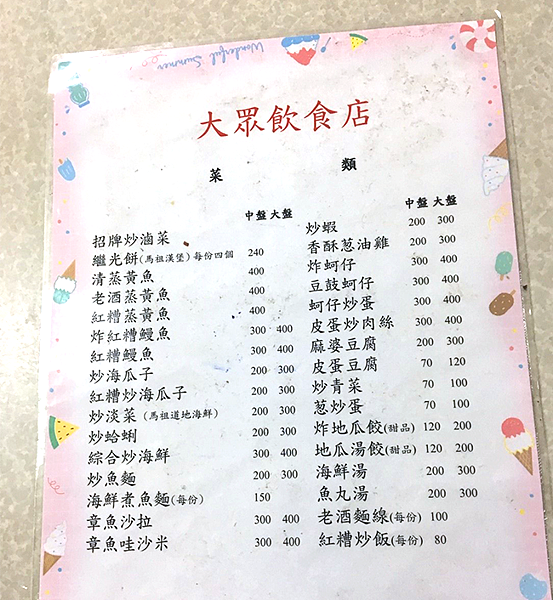 Wonderful Summer
大眾飲食店
菜 類
中盤 大盤
招牌炒滷菜
繼光餅(馬祖漢堡)每份四個 240
清蒸黃魚 400
老酒蒸黃魚 400
紅糟蒸黃魚 400
炸紅糟鰻魚 300 400
紅糟鰻魚 300 400
炒海瓜子 200 300
紅糟炒海瓜子 200 300
炒淡菜(馬祖道地海鮮) 200 300
炒蛤蜊 200 300
綜合炒海鮮 300 400
炒魚麵 200 300
海鮮煮魚麵(每份) 150
章魚沙拉 300 400
章魚哇沙米 300 400
中盤 大盤
炒蝦 200 300
香酥蔥油雞 200 300
炸蚵仔 300 400
豆鼓蚵仔 300 400
蚵仔炒蛋 300 400
皮蛋炒肉絲 300 400
麻婆豆腐 200 300
皮蛋豆腐 70 120
炒青菜 70 100
蔥炒蛋 70 100
炸地瓜餃(甜品) 120 200
地瓜湯餃(甜品) 120 200
海鮮湯 200 300
魚丸湯 200 300
老酒麵線(每份) 100
紅糟炒飯(每份) 80